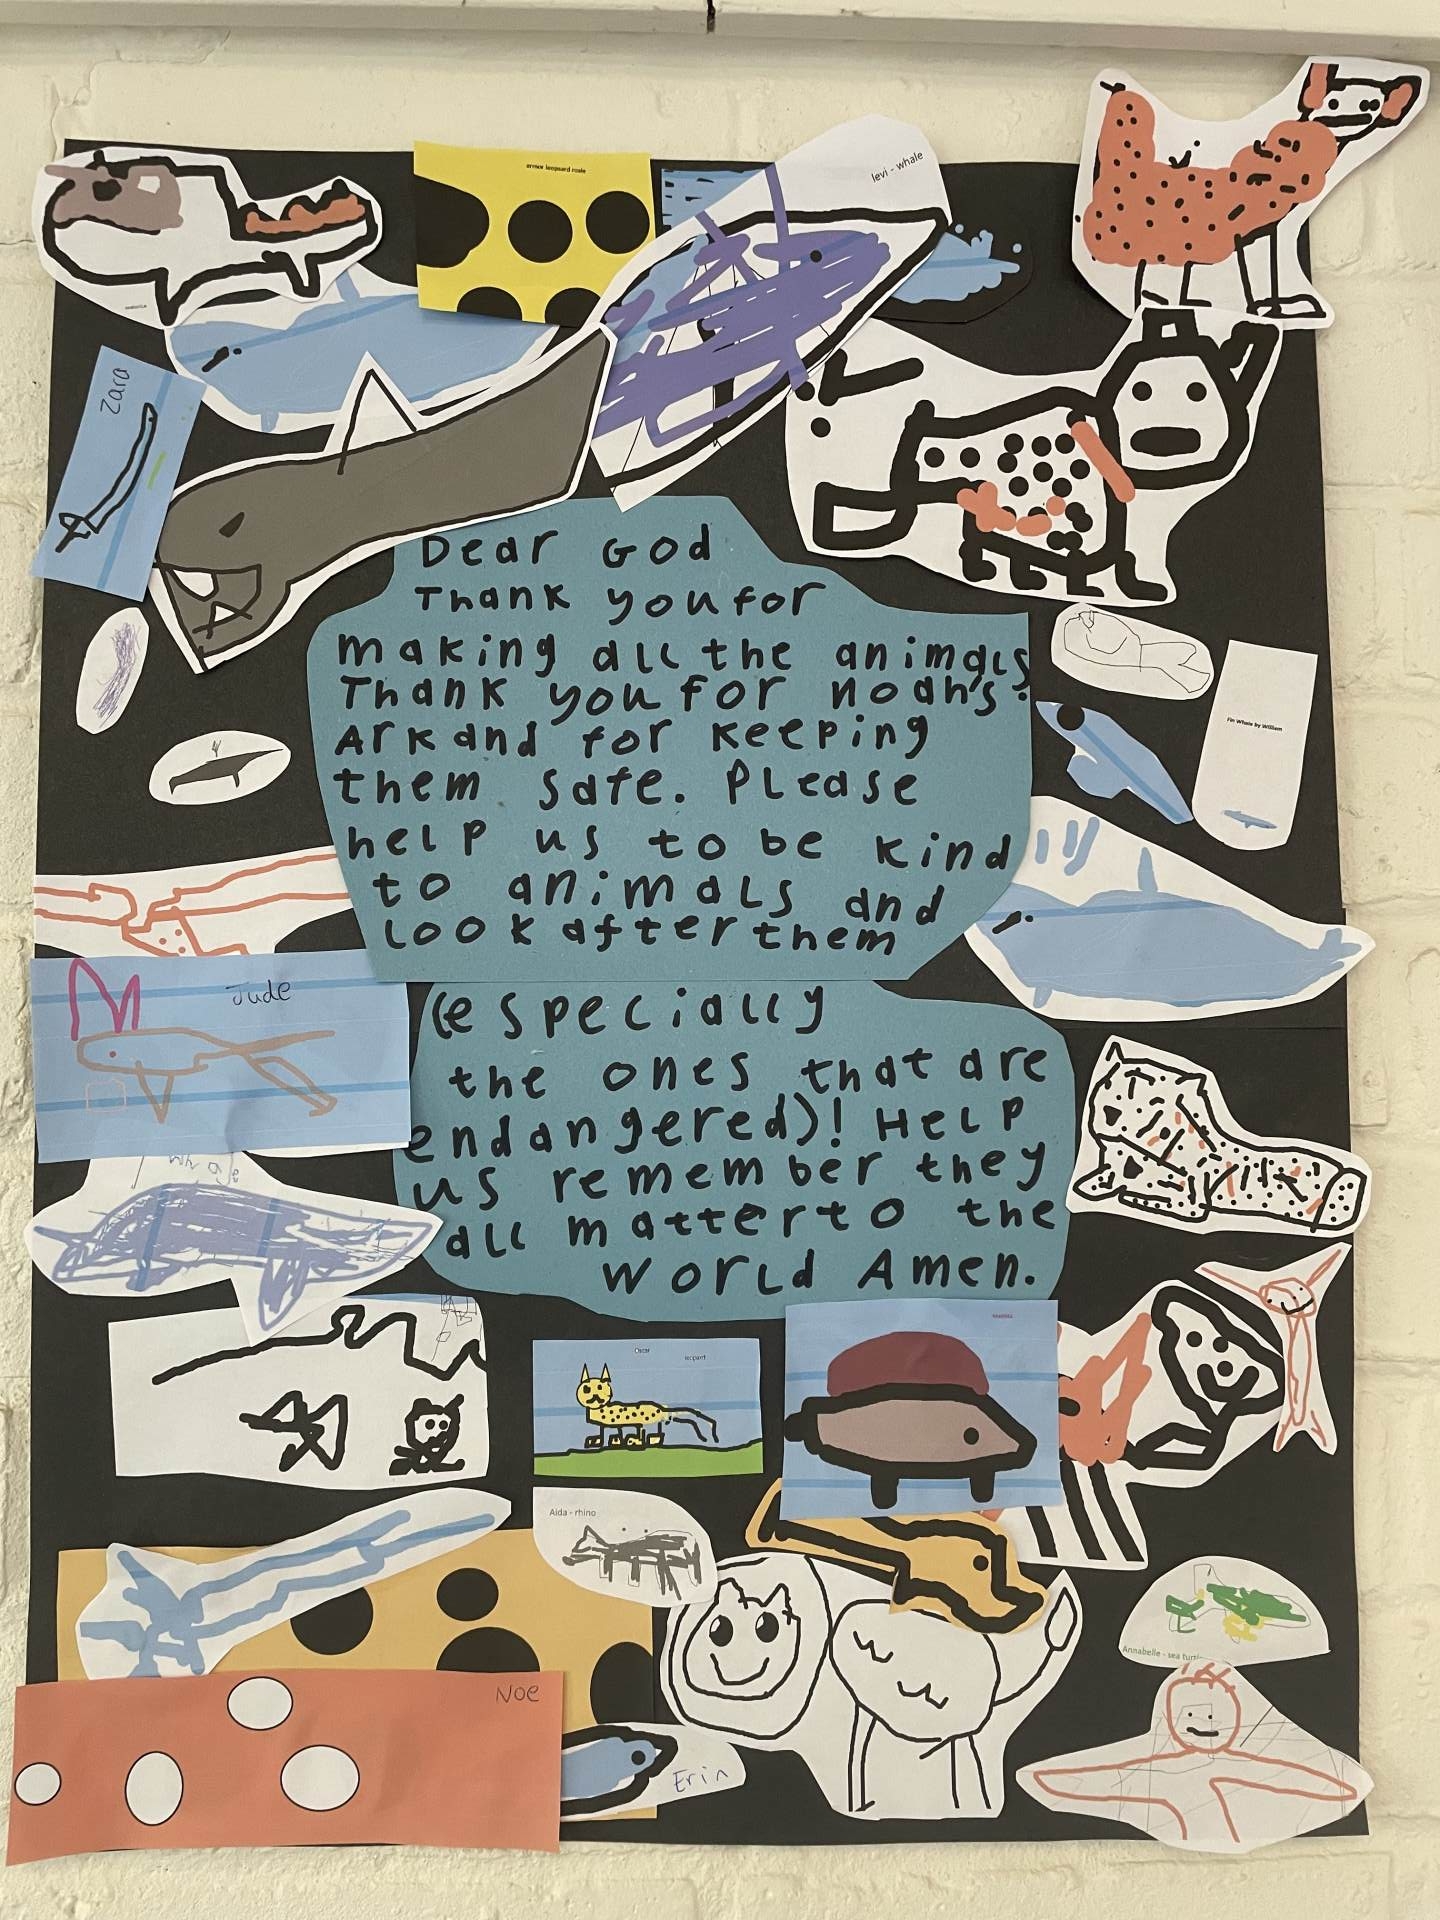 armor leopsard nosie
levi - whale
Zara
Dear God
Thank you for
making all the animals
Thank you for noah's
Ark and for keeping
them safe. Please
help us to be kind
to animals and
look after them
Fin Whale by William
Jude
(especially
the ones that are
endangered)! Help
us remember they
all matter to the
World Amen.
Oscar
leopard
Aida - rhino
Annabelle - sea turtle
Noe
Erin